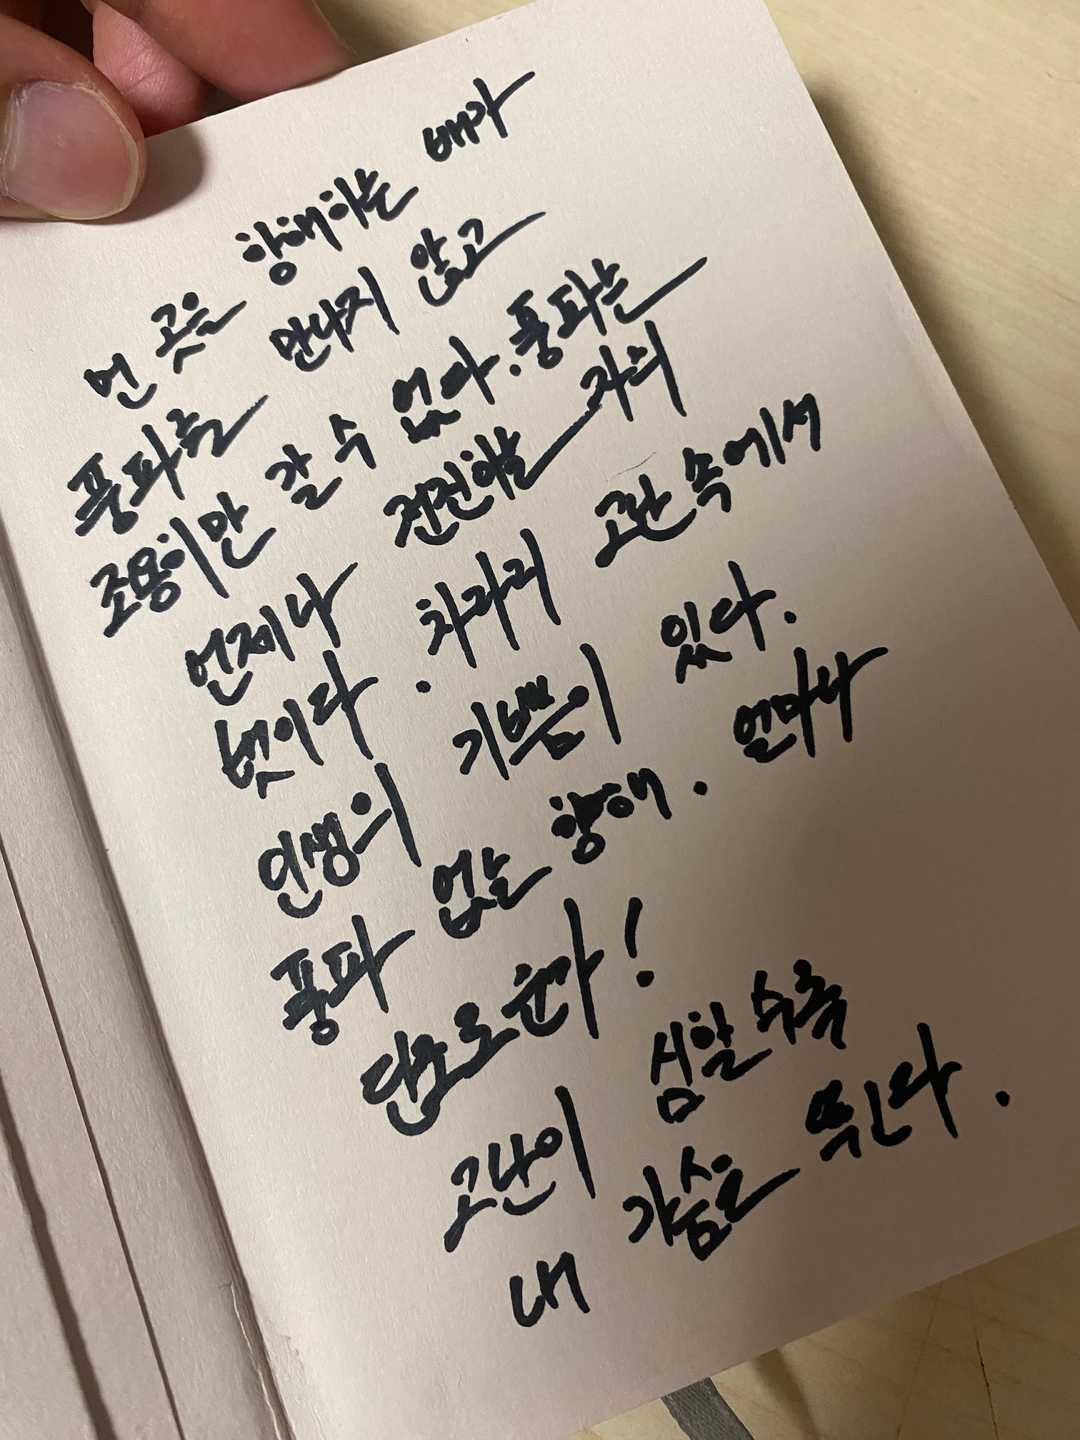 먼 곳을 항해하는 배가
풍파를 만나지 않고
조용히만 갈 수 없다. 풍파는
언제나 전진하는 자의
벗이다. 차라리 고난 속에서
인생의 기쁨이 있다.
풍파 없는 항해. 얼마나
단조로운가!
고난이 심할수록
내 가슴은 뛴다.